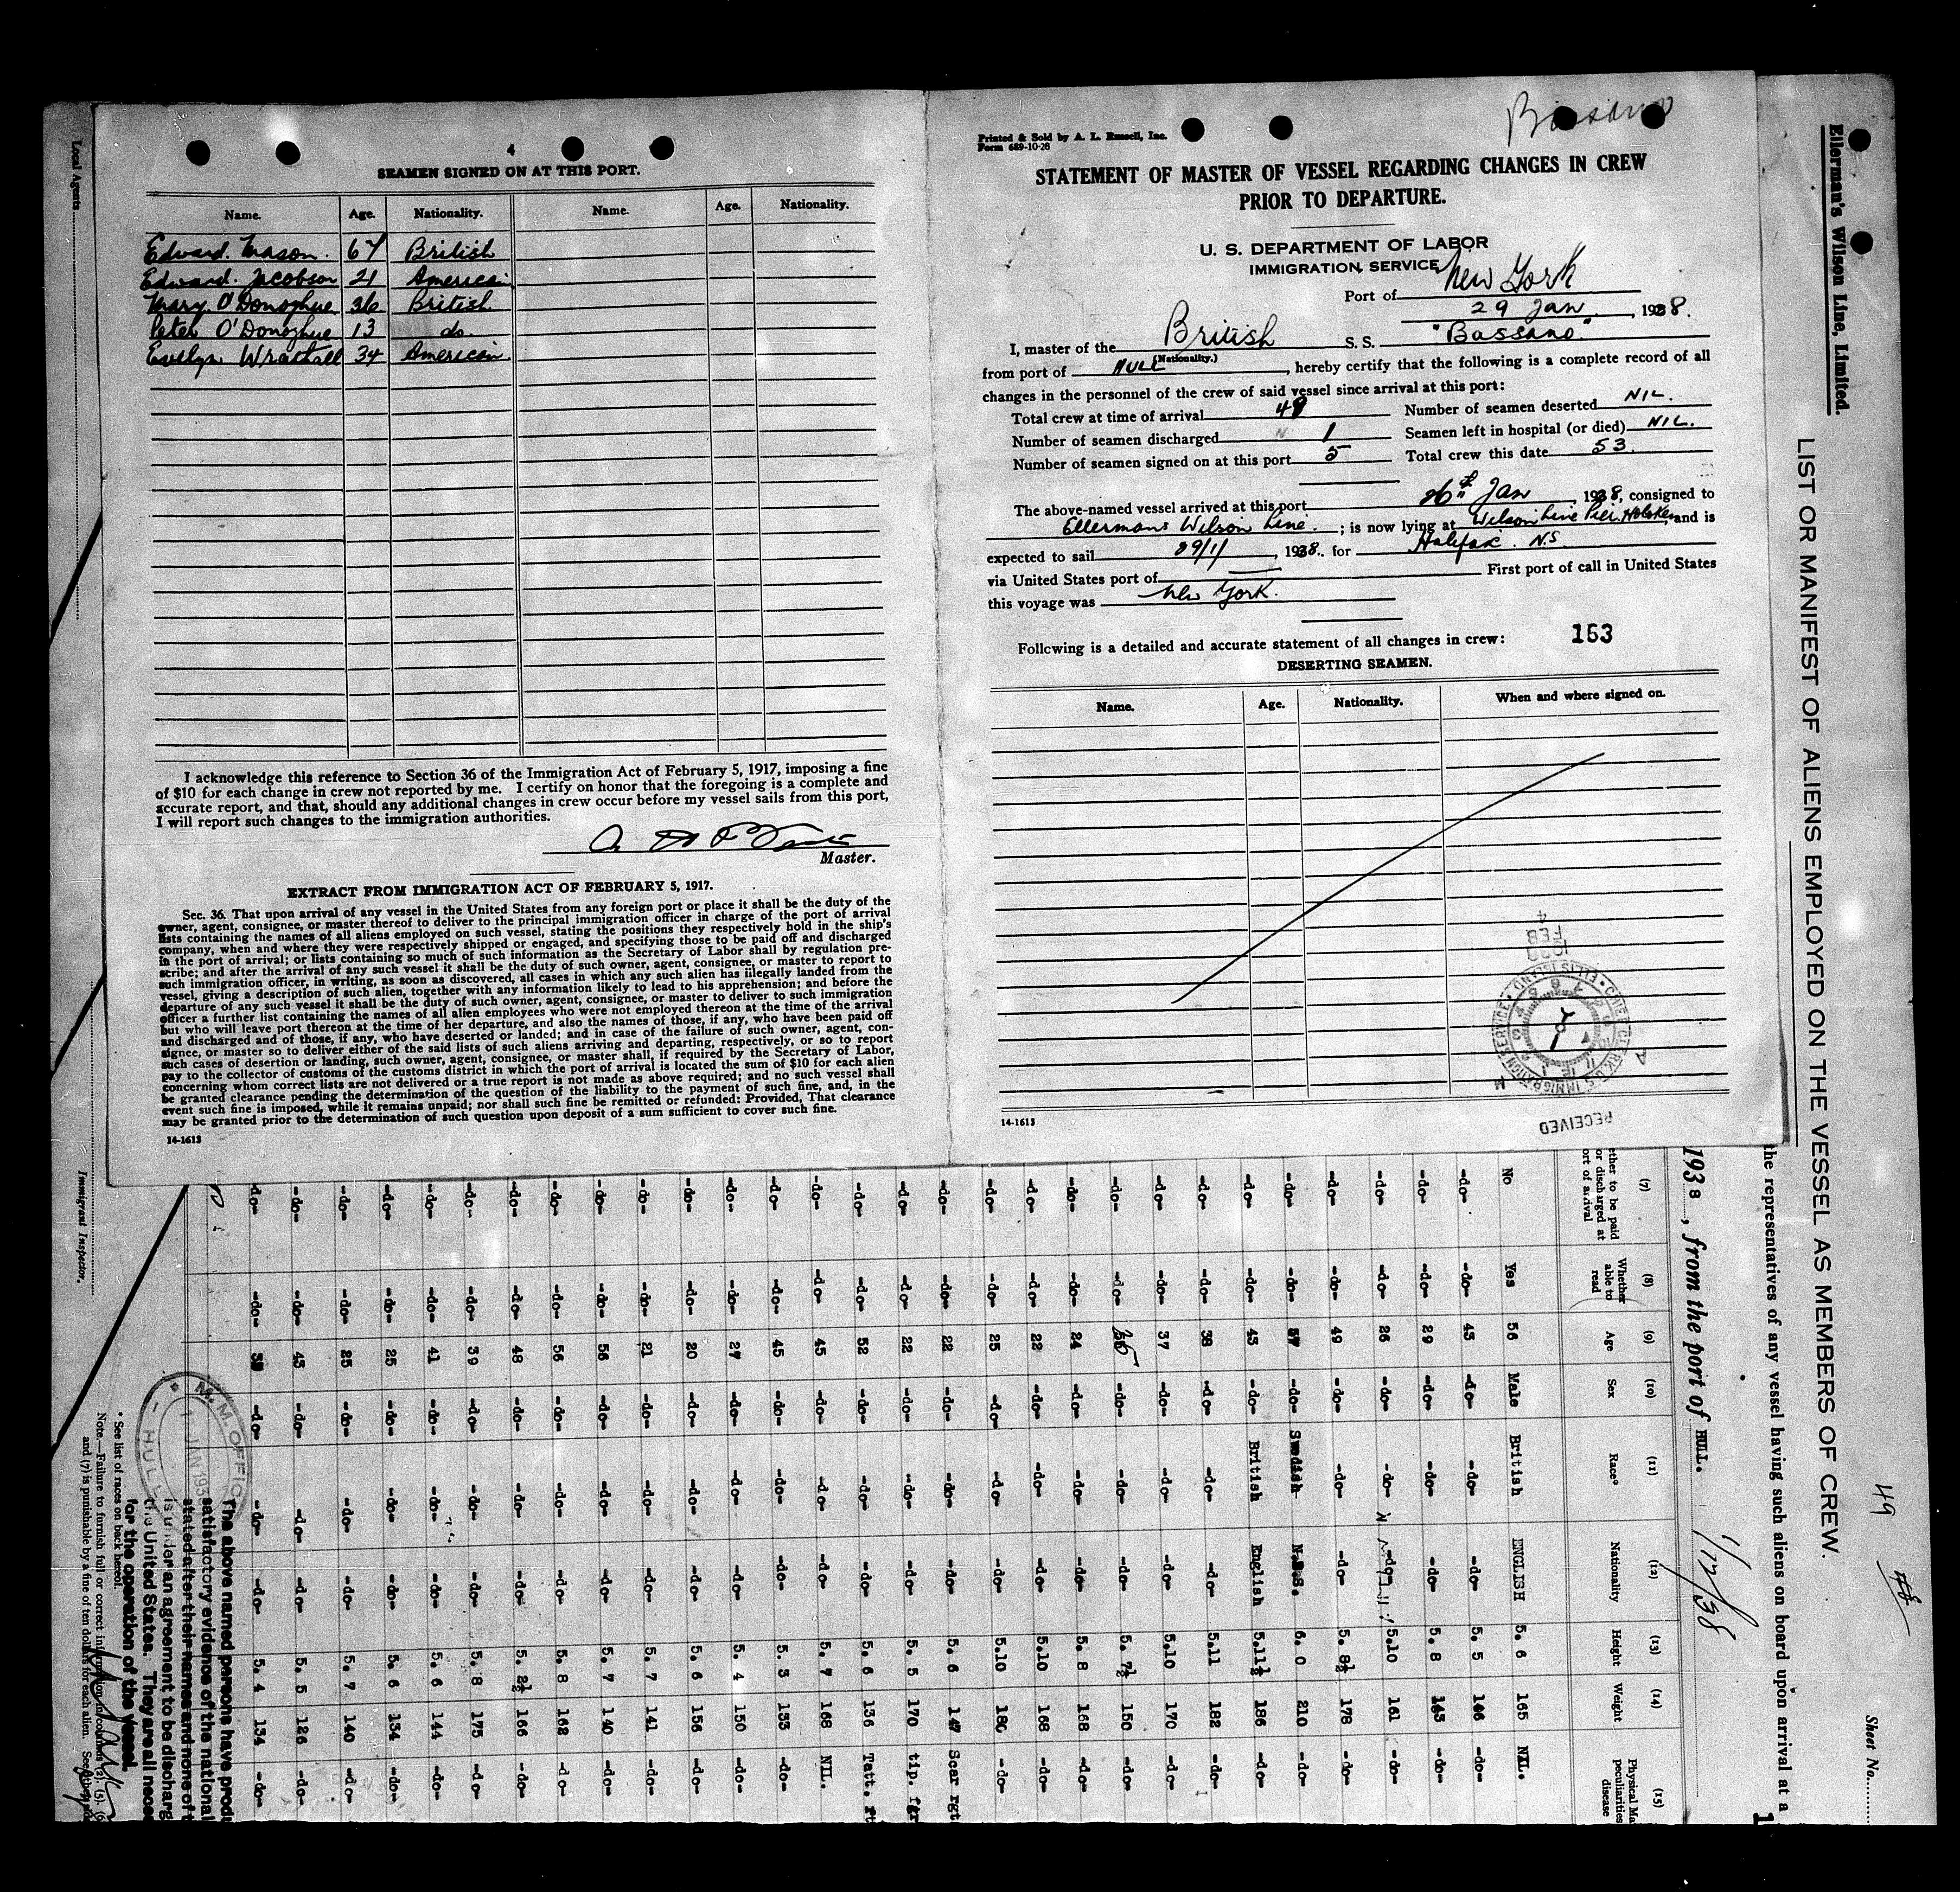 4
SEAMEN SIGNED ON AT THIS PORT.
Name. Age. Nationality. Name. Age. Nationality.
Edward. Mason. 67 British
Edward. Jacobson 21 American
Mary. O'Donoghue 36 British
Peter O'Donoghue 13 do.
Evelyn Wrathall 34 American.
I acknowledge this reference to Section 36 of the Immigration Act of February 5, 1917, imposing a fine
of $10 for each change in crew not reported by me. I certify on honor that the foregoing is a complete and
accurate report, and that, should any additional changes in crew occur before my vessel sails from this port,
I will report such changes to the immigration authorities.
Master.
EXTRACT FROM IMMIGRATION ACT OF FEBRUARY 5, 1917.
Sec. 36. That upon arrival of any vessel in the United States from any foreign port or place it shall be the duty of the
owner, agent, consignee, or master thereof to deliver to the principal immigration officer in charge of the port of arrival
lists containing the names of all aliens employed on such vessel, stating the positions they respectively hold in the ship's
company, when and where they were respectively shipped or engaged, and specifying those to be paid off and discharged
in the port of arrival; or lists containing so much of such information as the Secretary of Labor shall by regulation pre-
scribe; and after the arrival of any such vessel it shall be the duty of such owner, agent, consignee, or master to report to
such immigration officer, in writing, as soon as discovered, all cases in which any such alien has illegally landed from the
vessel, giving a description of such alien, together with any information likely to lead to his apprehension; and before the
departure of any such vessel it shall be the duty of such owner, agent, consignee, or master to deliver to such immigration
officer a further list containing the names of all alien employees who were not employed thereon at the time of the arrival
but who will leave port thereon at the time of her departure, and also the names of those, if any, who have been paid off
and discharged and of those, if any, who have deserted or landed; and in case of the failure of such owner, agent, con-
signee, or master so to deliver either of the said lists of such aliens arriving and departing, respectively, or so to report
such cases of desertion or landing, such owner, agent, consignee, or master shall, if required by the Secretary of Labor,
pay to the collector of customs of the customs district in which the port of arrival is located the sum of $10 for each alien
concerning whom correct lists are not delivered or a true report is not made as above required; and no such vessel shall
be granted clearance pending the determination of the question of the liability to the payment of such fine, and, in the
event such fine is imposed, while it remains unpaid; nor shall such fine be remitted or refunded: Provided, That clearance
may be granted prior to the determination of such question upon deposit of a sum sufficient to cover such fine.
14-1613
Bassano
Printed & Sold by A. L. Russell, Inc.
Form 689-10-26
STATEMENT OF MASTER OF VESSEL REGARDING CHANGES IN CREW
PRIOR TO DEPARTURE.
U. S. DEPARTMENT OF LABOR
IMMIGRATION SERVICE
Port of New York
29 Jan, 1938.
I, master of the British S. S. "Bassano"
(Nationality.)
from port of HULL, hereby certify that the following is a complete record of all
changes in the personnel of the crew of said vessel since arrival at this port:
Total crew at time of arrival 49 Number of seamen deserted NIL.
Number of seamen discharged 1 Seamen left in hospital (or died) NIL.
Number of seamen signed on at this port 5 Total crew this date 53.
The above-named vessel arrived at this port 26th Jan, 1938, consigned to
Ellermans Wilson Line.; is now lying at Wilson Line Pier. Hoboken and is
expected to sail 29/1/, 1938. for Halifax. N.S.
via United States port of First port of call in United States
this voyage was New York.
Following is a detailed and accurate statement of all changes in crew: 163
DESERTING SEAMEN.
Name. Age. Nationality. When and where signed on.
FEB 4
RECEIVED
14-1613
Ellerman's Wilson Line, Limited.
LIST OR MANIFEST OF ALIENS EMPLOYED ON THE VESSEL AS MEMBERS OF CREW.
Sheet No.
49
48
the representatives of any vessel having such aliens on board upon arrival at a
1938, from the port of HULL. 1/12/38
(7) (8) (9) (10) (11) (12) (13) (14) (15)
ether to be paid or discharged at ort of arrival Whether able to read Age Sex Race* Nationality Height Weight Physical Ma peculiarities disease
No Yes 56 Male British ENGLISH 5. 6 165 NIL.
-do- -do- 43 -do- -do- -do- 5. 5 166 -do-
-do- -do- 29 -do- -do- -do- 5. 8 163 -do-
-do- -do- 26 -do- -do- -do- 5.10 161 -do-
-do- -do- 49 -do- -do- -do- 5. 8½ 178 -do-
-do- -do- 57 -do- Swedish N.B.S. 6. 0 210 -do-
-do- -do- 43 -do- British English 5.11½ 186 -do-
-do- -do- 38 -do- -do- -do- 5.11 182 -do-
-do- -do- 37 -do- -do- -do- 5.10 170 -do-
-do- -do- -do- -do- -do- 5. 7½ 150 -do-
-do- -do- 24 -do- -do- -do- 5. 8 168 -do-
-do- -do- 22 -do- -do- -do- 5.10 168 -do-
-do- -do- 25 -do- -do- -do- 5.10 180 -do-
-do- -do- 22 -do- -do- -do- 5. 6 147 Scar rgt
-do- -do- 22 -do- -do- -do- 5. 5 170 tip. fgr
-do- -do- 52 -do- -do- -do- 5. 6 136 Tatt.
-do- -do- 45 -do- -do- -do- 5. 7 168 NIL.
-do- -do- 45 -do- -do- -do- 5. 3 133 -do-
-do- -do- 27 -do- -do- -do- 5. 4 150 -do-
-do- -do- 20 -do- -do- -do- 5. 6 156 -do-
-do- -do- 21 -do- -do- -do- 5. 7 141 -do-
-do- -do- 56 -do- -do- -do- 5. 7 140 -do-
-do- -do- 56 -do- -do- -do- 5. 8 162 -do-
-do- -do- 48 -do- -do- -do- 5. 2½ 166 -do-
-do- -do- 39 -do- -do- -do- 5. 8 175 -do-
-do- -do- 41 -do- -do- -do- 5. 6 144 -do-
-do- -do- 25 -do- -do- -do- 5. 6 134 -do-
-do- -do- 25 -do- -do- -do- 5. 7 140 -do-
-do- -do- 43 -do- -do- -do- 5. 5 126 -do-
-do- -do- -do- -do- -do- 5. 4 134 -do-
The above named persons have produ
satisfactory evidence of the national
stated after their names and none of t
is under an agreement to be discharg
the United States. They are all neces
for the operation of the vessel.
M. M. OFFICE
JAN 193
HULL
* See list of races on back hereof.
Note.—Failure to furnish full or correct information in columns (2), (5), (6
and (7) is punishable by a fine of ten dollars for each alien.
Local Agents
Immigrant Inspector.